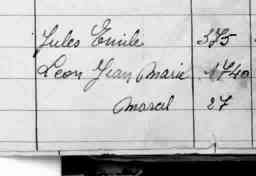 Jules Emile 375
Leon Jean Marie 1740
Marcel 27